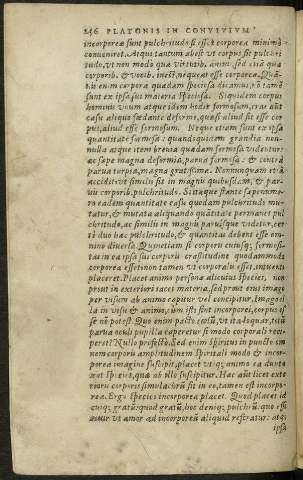 246 PLATONIS IN CONVIVIUM
incorporeæ sunt pulchritudo si esset corporea minimè
conueniret. Atqui tantum abest vt corpus sit pulchri-
tudo, vt non modo quæ virtutib. animi sed etiã quæ
corporib. & vocib. inest, nequeat esse corporea. Quã-
uis enim corpora quædam speciosa dicamus, nõ tamẽ
sunt ex ipsa sua materia speciosa. Siquidem corpus
hominis vnum atque idem hodie formosum, cras aut
casu aliquo fœdante deforme, quasi aliud sit esse cor
pus, aliud esse formosum. Neque etiam sunt ex ipsa
quantitate formosa: quandoquidem grandia non-
nulla atque item breuia quædam formosa videntur:
ac sæpe magna deformia, parua formosa: & contrà
parua turpia, magna gratissima. Nonnunquam etiã
accidit vt similis sit in magnis quibusdam, & par-
uis corporib. pulchritudo. Si itaque stante sæpenume-
ro eadem quantitate casu quodam pulchritudo mu-
tatur, & mutata aliquando quãtitate permanet pul
chritudo, ac similis in magnis paruisque videtur, cer
tè duo hæc pulchritudo, & quantitas debent esse om-
nino diuersa. Quinetiam si corporis cuiusq; formosi-
tas in ea ipsa sui corporis crassitudine quodammodo
corporea esset non tamen vt corporalis esset, intuenti
placeret. Placet animo persona alicuius species, non
prout in exteriori iacet materia, sed prout eius imago
per visum ab animo capitur vel concipitur. Imago il-
la in visu & animo, cum isti sint incorporei, corpus es
se nõ potest. Quo enim pacto cœlũ, vt ita loquar, totũ
parua oculi pupilla caperetur si modo corporali reci-
peret? Nullo profecto. Sed enim spiritus in puncto om
nem corporis amplitudinem spiritali modo & incor-
porea imagine suscipit, placet vtiq; animo ea dunta-
xat species, quæ ab illo suscipitur. Hæc autẽ licet exte
rioris corporis simulachrũ sit in eo, tamen est incorpo-
rea. Ergo species incorporea placet. Quod placet id
cuiq; gratũ: quod gratũ, hoc deniq; pulchrũ: quo effi
citur vt amor ad incorporeũ aliquid referatur: atq;
ipsa